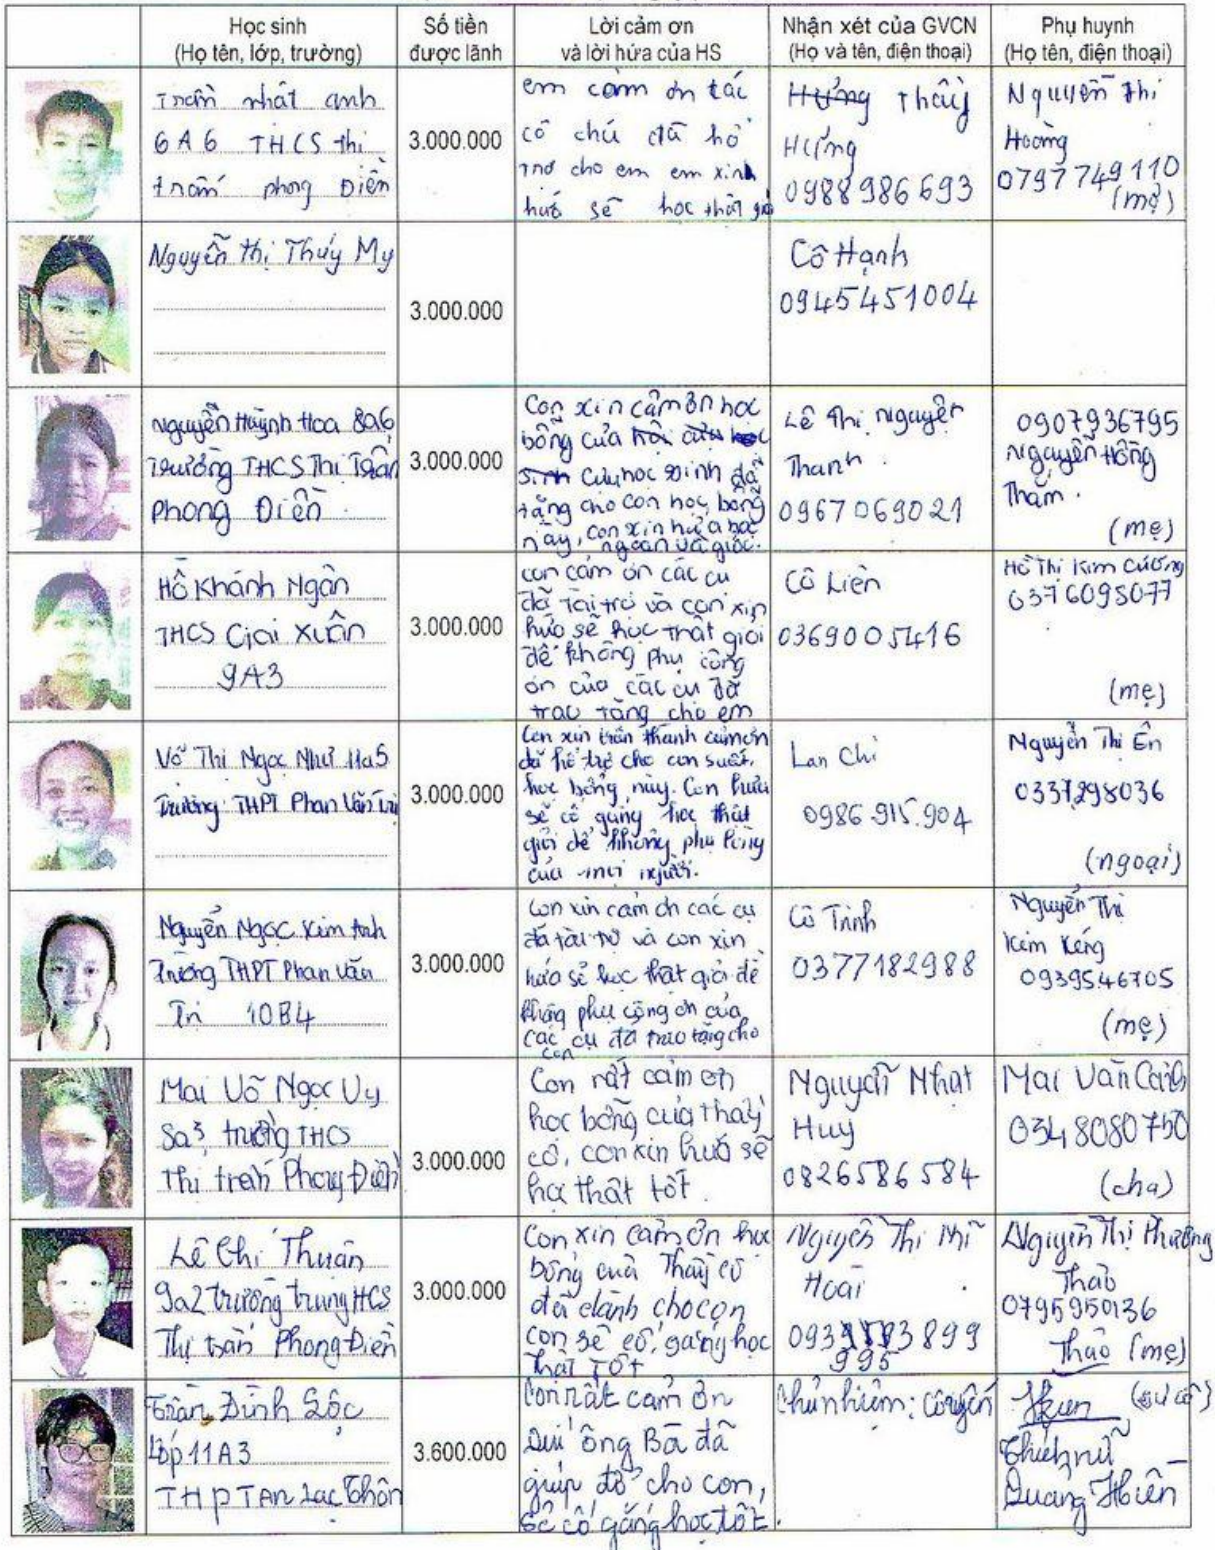 Học sinh
(Họ tên, lớp, trường)
Số tiền
được lãnh
Lời cảm ơn
và lời hứa của HS
Nhận xét của GVCN
(Họ và tên, điện thoại)
Phụ huynh
(Họ tên, điện thoại)
Trần nhật anh
6A6 THCS thị
trấn phong Điền
3.000.000
em cảm ơn các
cô chú đã hổ
trợ cho em em xinh
hứa sẽ học thật giỏi
Hưởng Thầy
Hưởng
0988986693
Nguyễn thị
Hoàng
0797749110
(mẹ)
Nguyễn thị Thúy My
3.000.000
Cô Hạnh
0945451004
Nguyễn Huỳnh Hoa 8a6
Trường THCS Thị Trấn
Phong Điền
3.000.000
Con xin cảm ơn học
bổng của
Cựu học sinh đã
tặng cho con học bổng
này, con xin hứa học
ngoan và giỏi.
Lê Thị Nguyệt
Thanh.
0967069021
0907936795
Nguyễn Hồng
Thắm.
(mẹ)
Hồ Khánh Ngân
THCS Giai Xuân
9A3
3.000.000
con cảm ơn các cu
đã tài trợ và con xin
hứa sẽ học thật giỏi
để không phụ công
ơn của các cụ đã
trao tặng cho em
Cô Liên
0369005416
Hồ Thị Kim Cương
0376095077
(mẹ)
Võ Thị Ngọc Như 11a5
Trường: THPT Phan Văn Trị
3.000.000
Con xin trân thành cảm ơn
đã hỗ trợ cho con suất
học bổng này. Con hứa
sẽ cố gắng học thật
giỏi để không phụ lòng
của mọi người.
Lan Chi
0986.915.904
Nguyễn Thị Ên
0337298036
(ngoại)
Nguyễn Ngọc Kim Anh
Trường THPT Phan Văn
Trị 10B4
3.000.000
Con xin cảm ơn các cụ
đã tài trợ và con xin
hứa sẽ học thật giỏi để
không phụ công ơn của
các cụ đã trao tặng cho
con
Cô Trinh
0377182988
Nguyễn Thị
Kim Kéng
0939546705
(mẹ)
Mai Võ Ngọc Vy
8a3 trường THCS
Thị trấn Phong Điền
3.000.000
Con rất cảm ơn
học bổng của thầy
cô, con xin hứa sẽ
học thật tốt.
Nguyễn Nhật
Huy
0826586584
Mai Văn
0348080750
(cha)
Lê Chí Thuận
9a2 trường trung HCS
Thị trấn Phong Điền
3.000.000
Con xin cảm ơn học
bổng của Thầy cô
đã dành cho con
con sẽ cố gắng học
thật tốt
Nguyễn Thị Mĩ
Hoài.
899
995
Nguyễn Thị Phương
Thảo
0795950136
Thảo (mẹ)
Trần Đình Lộc
Lớp 11A3
THPT An Lạc Thôn
3.600.000
Con rất cảm ơn
Quí ông Bà đã
giúp đỡ cho con,
sẽ cố gắng học tốt.
Chủ nhiệm:
(sư cô)
Thích nữ
Quang Hiền